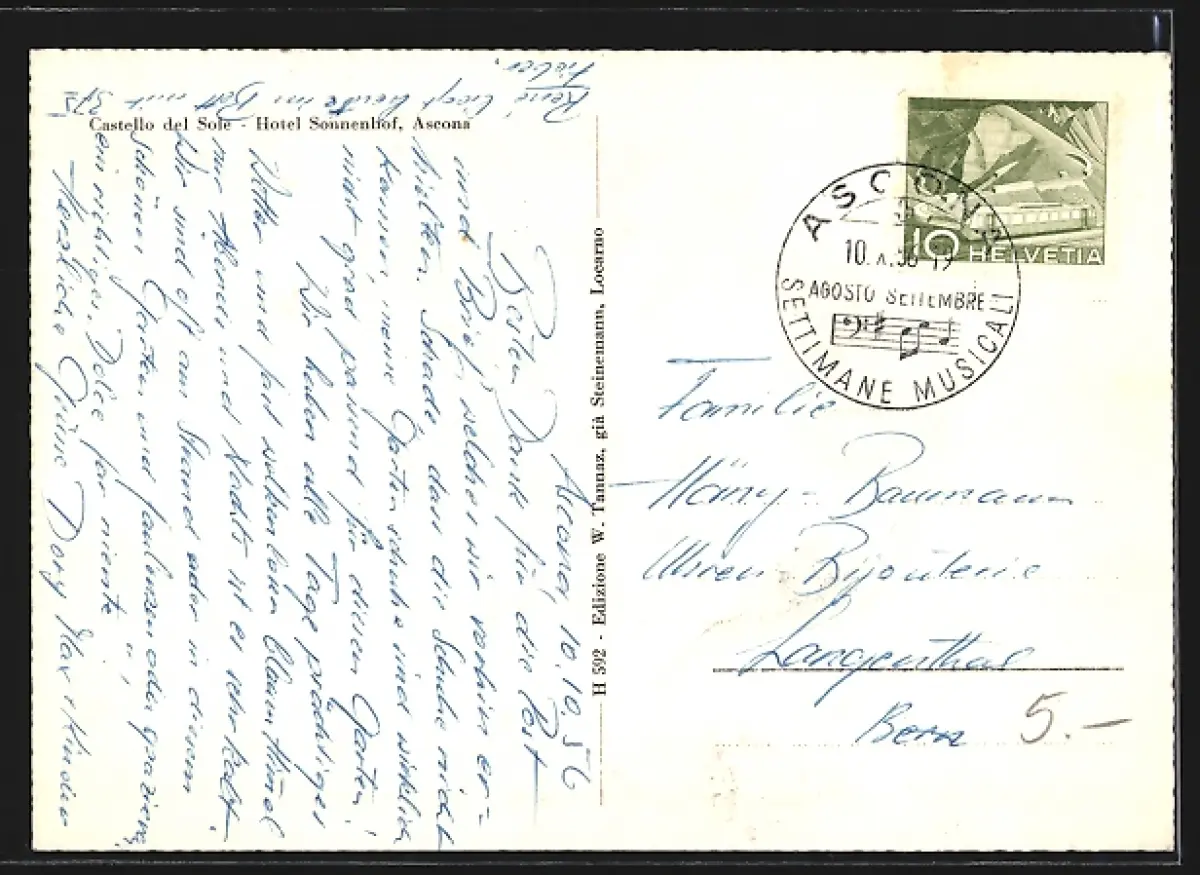 Castello del Sole - Hotel Sonnenhof, Ascona
Ascona, 10.10.56
Besten Dank für die Post
und Brief, welchen wir vorhin er-
hielten. Schade, dass die Schuhe nicht
kamen, meine Gartenschuhe sind wirklich
nicht grad passend für diesen Garten!
Wir haben alle Tage prächtiges
Wetter und fast wolkenlosen blauen Himmel
nur Abends und Nachts ist es sehr kalt.
Wir sind oft am Strand oder in diesem
schönen Garten und faulenzen oder spazieren,
ein richtiges "Dolce far niente".
Herzliche Grüsse Dory Max + Kinder
René liegt heute im Bett mit 37⁵
Fieber.
H 592 - Edizione W. Tannaz, già Steinemann, Locarno
10 HELVETIA
ASCONA
10.X.56-19
AGOSTO SETTEMBRE
SETTIMANE MUSICALI
Familie
Häny-Baumann
Uhren-Bijouterie
Langenthal
Bern
5.-